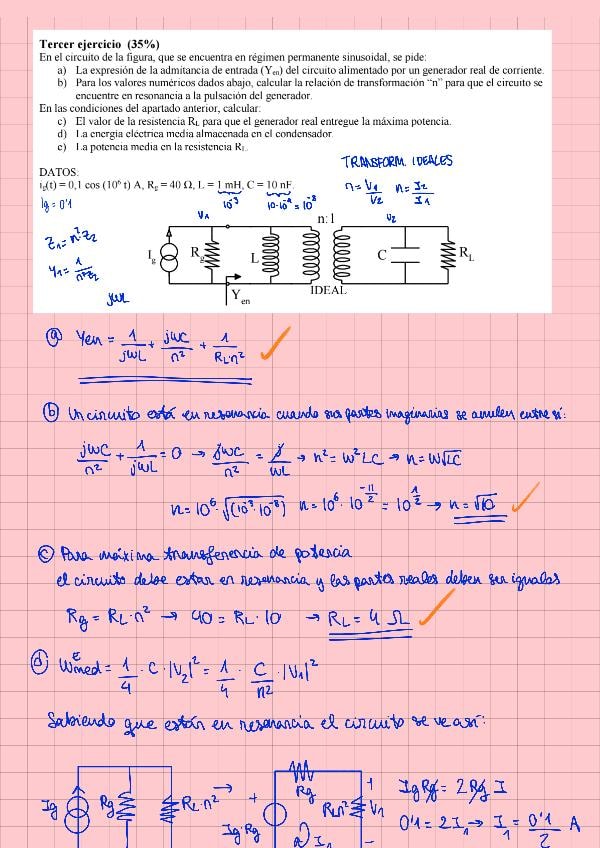 Tercer ejercicio (35%)
En el circuito de la figura, que se encuentra en régimen permanente sinusoidal, se pide:
a) La expresión de la admitancia de entrada (Yen) del circuito alimentado por un generador real de corriente.
b) Para los valores numéricos dados abajo, calcular la relación de transformación "n" para que el circuito se
encuentre en resonancia a la pulsación del generador.
En las condiciones del apartado anterior, calcular:
c) El valor de la resistencia RL para que el generador real entregue la máxima potencia.
d) La energía eléctrica media almacenada en el condensador.
e) La potencia media en la resistencia RL.
DATOS:
ig(t) = 0,1 cos (10⁶ t) A, Rg = 40 Ω, L = 1 mH, C = 10 nF.
Ig = 0'1
10⁻³
10·10⁻⁹ = 10⁻⁸
TRANSFORM. IDEALES
n = V1/V2 n = I2/I1
Z1 = n²·Z2
Y1 = 1/n²Z2
jWL
V1
n:1
V2
Ig
Rg
L
C
RL
Yen
IDEAL
a) Yen = 1/jWL + jWC/n² + 1/RL·n²
b) Un circuito está en resonancia cuando sus partes imaginarias se anulen entre sí:
jWC/n² + 1/jWL = 0 → jWC/n² = j/WL → n² = W²LC → n = W√LC
n = 10⁶·√(10⁻³·10⁻⁸) n = 10⁶·10^(-11/2) = 10^(1/2) → n = √10
c) Para máxima transferencia de potencia
el circuito debe estar en resonancia y las partes reales deben ser iguales
Rg = RL·n² → 40 = RL·10 → RL = 4 Ω
d) WEmed = 1/4 · C·|V2|² = 1/4 · C/n² · |V1|²
Sabiendo que están en resonancia el circuito se ve así:
Ig
Rg
RL·n² →
+
Ig·Rg
Rg
RLn²
+
V1
I1
Ig Rg = 2Rg I
0'1 = 2I1 → I1 = 0'1/2 A